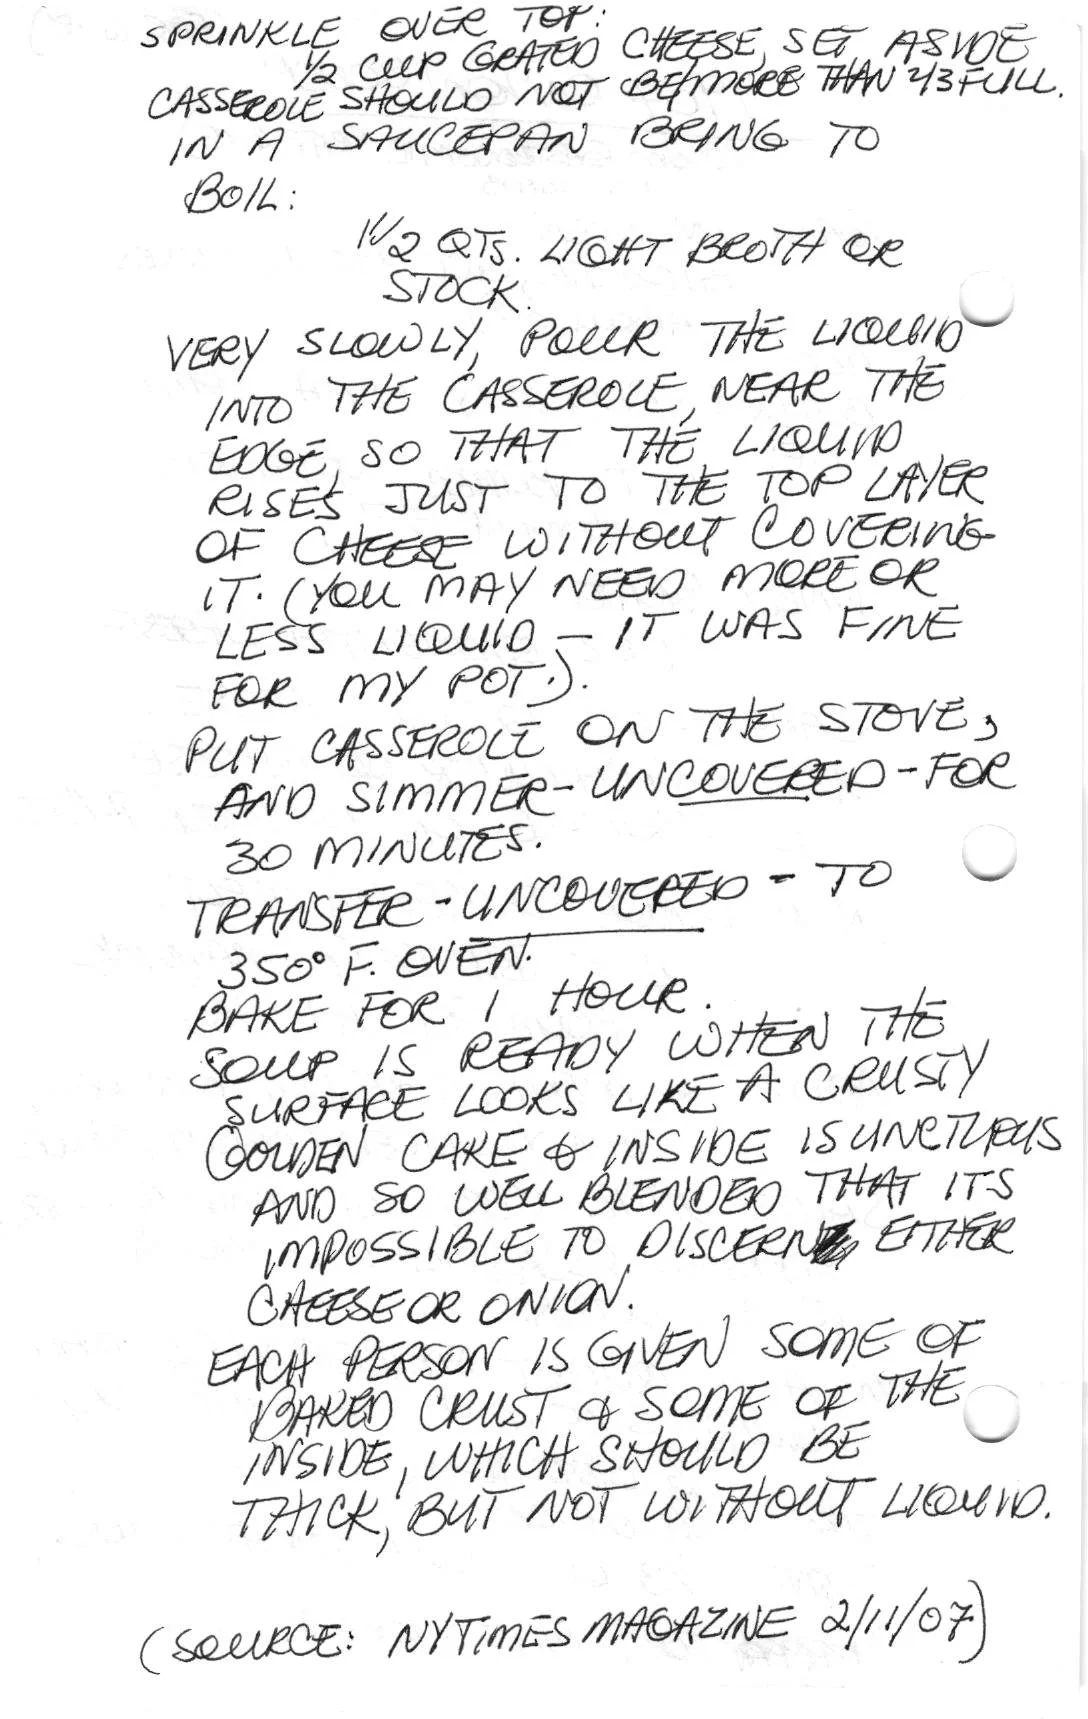 SPRINKLE OVER TOP:
1/2 CUP GRATED CHEESE, SET ASIDE
CASSEROLE SHOULD NOT BE MORE THAN 2/3 FULL.
IN A SAUCEPAN BRING TO
BOIL:
1 1/2 QTS. LIGHT BROTH OR
STOCK.
VERY SLOWLY, POUR THE LIQUID
INTO THE CASSEROLE, NEAR THE
EDGE, SO THAT THE LIQUID
RISES JUST TO THE TOP LAYER
OF CHEESE WITHOUT COVERING
IT. (YOU MAY NEED MORE OR
LESS LIQUID – IT WAS FINE
FOR MY POT.).
PUT CASSEROLE ON THE STOVE,
AND SIMMER - UNCOVERED - FOR
30 MINUTES.
TRANSFER - UNCOVERED - TO
350° F. OVEN.
BAKE FOR 1 HOUR.
SOUP IS READY WHEN THE
SURFACE LOOKS LIKE A CRUSTY
GOLDEN CAKE & INSIDE IS UNCTUOUS
AND SO WELL BLENDED THAT ITS
IMPOSSIBLE TO DISCERN EITHER
CHEESE OR ONION.
EACH PERSON IS GIVEN SOME OF
BAKED CRUST & SOME OF THE
INSIDE, WHICH SHOULD BE
THICK, BUT NOT WITHOUT LIQUID.
(SOURCE: NYTIMES MAGAZINE 2/11/07)